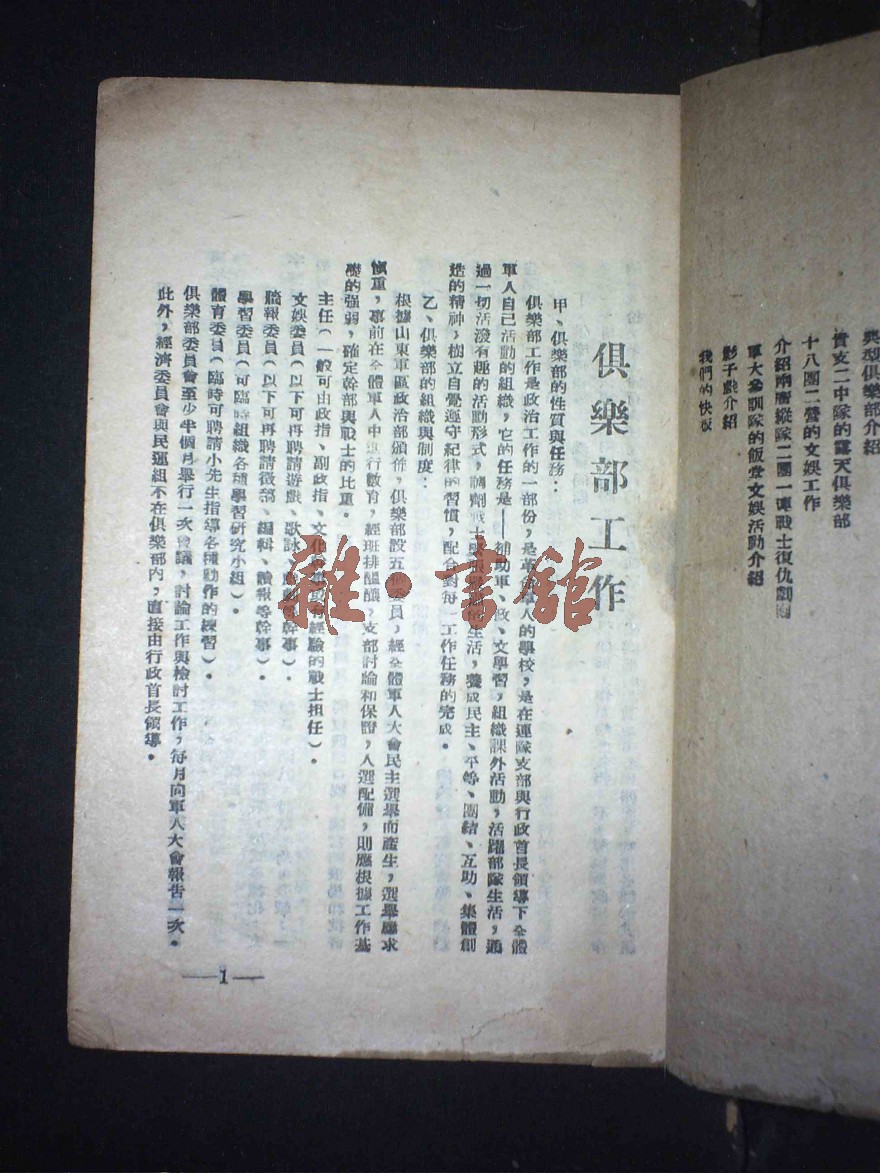 典型俱樂部介紹
二中隊的露天俱樂部
十八團二營的文娛工作
介紹 縱隊二團一連戰士復仇劇團
軍大 訓隊的飯堂文娛活動介紹
影子戲介紹
我們的快板
俱樂部工作
甲、俱樂部的性質與任務：
俱樂部工作是政治工作的一部份，是革 軍人的學校，是在連隊支部與行政首長領導下全體
軍人自己活動的組織，它的任務是——補助軍、政、文學習，組織課外活動，活躍部隊生活，通
過一切活潑有趣的活動形式，調劑戰士 的生活，養成民主、平等、團結、互助、集體創
造的精神，樹立自覺遵守紀律的習慣，配合 每一工作任務的完成。
乙、俱樂部的組織與制度：
根據山東軍區政治部頒佈，俱樂部設五 委員，經全體軍人大會民主選舉而產生，選舉應求
慎重，事前在全體軍人中進行教育，經班排醞釀，支部討論和保證，人選配備，則應根據工作基
礎的強弱，確定幹部與戰士的比重。
主任（一般可由政指、副政指、文化 有經驗的戰士担任）。
文娛委員（以下可再聘請遊戲、歌詠、 等幹事）。
牆報委員（以下可再聘請徵稿、編輯、讀報等幹事）。
學習委員（可臨時組織各種學習研究小組）。
體育委員（臨時可聘請小先生指導各種動作的練習）。
俱樂部委員會至少半個月舉行一次會議，討論工作與檢討工作，每月向軍人大會報告一次。
此外，經濟委員會與民運組不在俱樂部內，直接由行政首長領導。
—1—
雜·書館